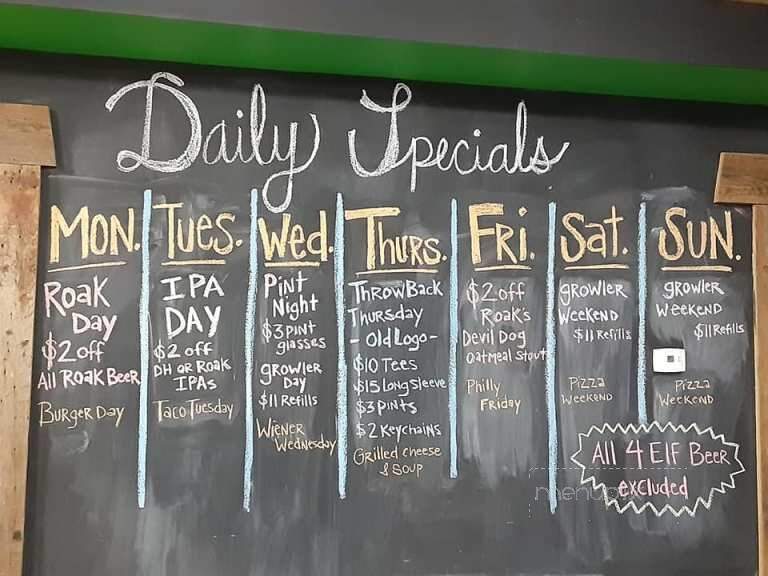 Daily Specials
Mon.
Roak
Day
$2 off
All Roak Beer
Burger Day
Tues.
IPA
DAY
$2 off
DH or Roak
IPAs
Taco Tuesday
Wed.
Pint
Night
$3 pint
glasses
growler
Day
$11 Refills
Wiener
Wednesday
Thurs.
ThrowBack
Thursday
- Old Logo -
$10 Tees
$15 Long Sleeve
$3 pints
$2 Keychains
Grilled cheese
& Soup
Fri.
$2 off
Roak's
Devil Dog
Oatmeal Stout
Philly
Friday
Sat.
growler
Weekend
$11 Refills
Pizza
Weekend
Sun.
growler
Weekend
$11 Refills
Pizza
Weekend
All 4 Elf Beer
excluded